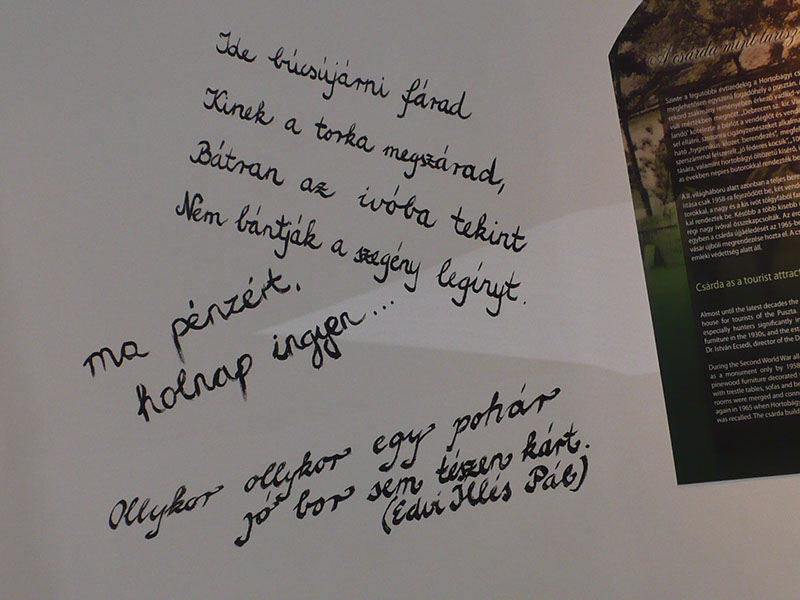 Ide búcsújárni fárad
Kinek a torka megszárad,
Bátran az ivóba tekint
Nem bántják a szegény legínyt.
ma pénzért,
holnap ingyen...
Ollykor ollykor egy pohár
jó bor sem tészen kárt.
(Edvi Illés Pál)
A csárda mint turisz
Szinte a legutóbbi évtizedekig a Hortobágyi cs
meglehetősen egyszerű fogadóhely a pusztán,
rekord zsákmány reményében érkező vadász
"Debrecen sz. kir. vá
kötelezte a bérlőt a vendéglőt és vendé
sel ellátni, szezonra cigányzenészeket alkalma
ható „hygienikus klozet berendezés",
szerszámmal felszerelt „jó féderes kocsik",
tására, valamint hortobágyi öltözetű kísérő,
as években népies bútorokkal rendezték be
A II. világháború alatt azonban a teljes bere
csak 1958-ra fejeződött be, két vend
torokkal, a nagy és a kis ivót tölgyfából fa
kal rendeztek be. Később a több kisebb
régi nagy ivóval összekapcsolták. Az ér
egyben a csárda újjáéledését az 1965-be
vásár újbóli megrendezése hozta el. A cs
emléki védettség alatt áll.
Csárda as a tourist attract
Almost until the latest decades the
house for tourists of the Puszta.
especially hunters significantly in
furniture in the 1930s, and the est
Dr. István Ecsedi, director of the D
During the Second World War all
as a monument only by 1958
pinewood furniture decorated
with trestle tables, sofas and be
rooms were merged and conne
again in 1965 when Hortobágy
was recalled. The csárda build